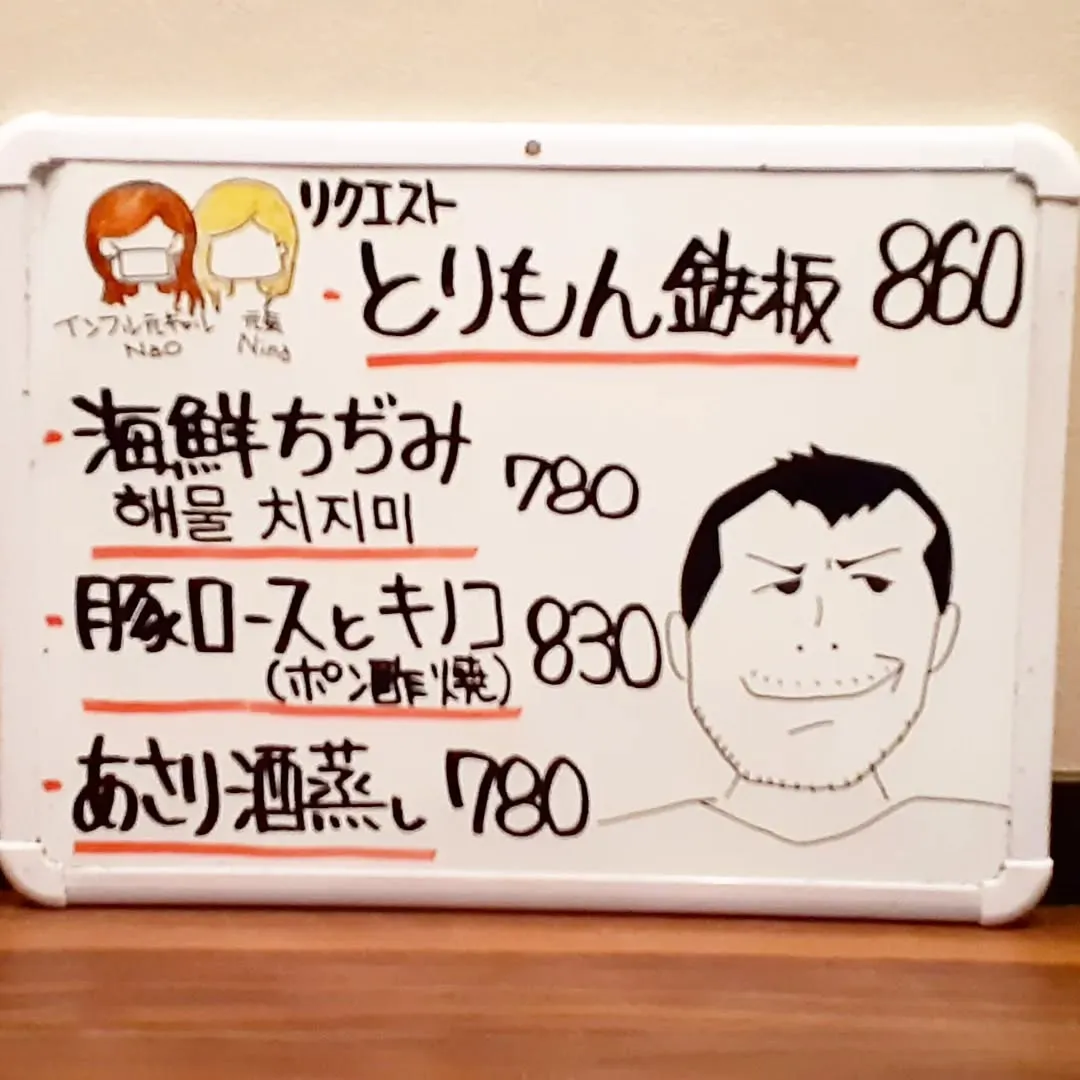 リクエスト
・とりもん鉄板 860
インフル元ギャル 元気
Nao Nina
・海鮮ちぢみ 780
해물 치지미
・豚ロースとキノコ 830
(ポン酢焼)
・あさり酒蒸し 780